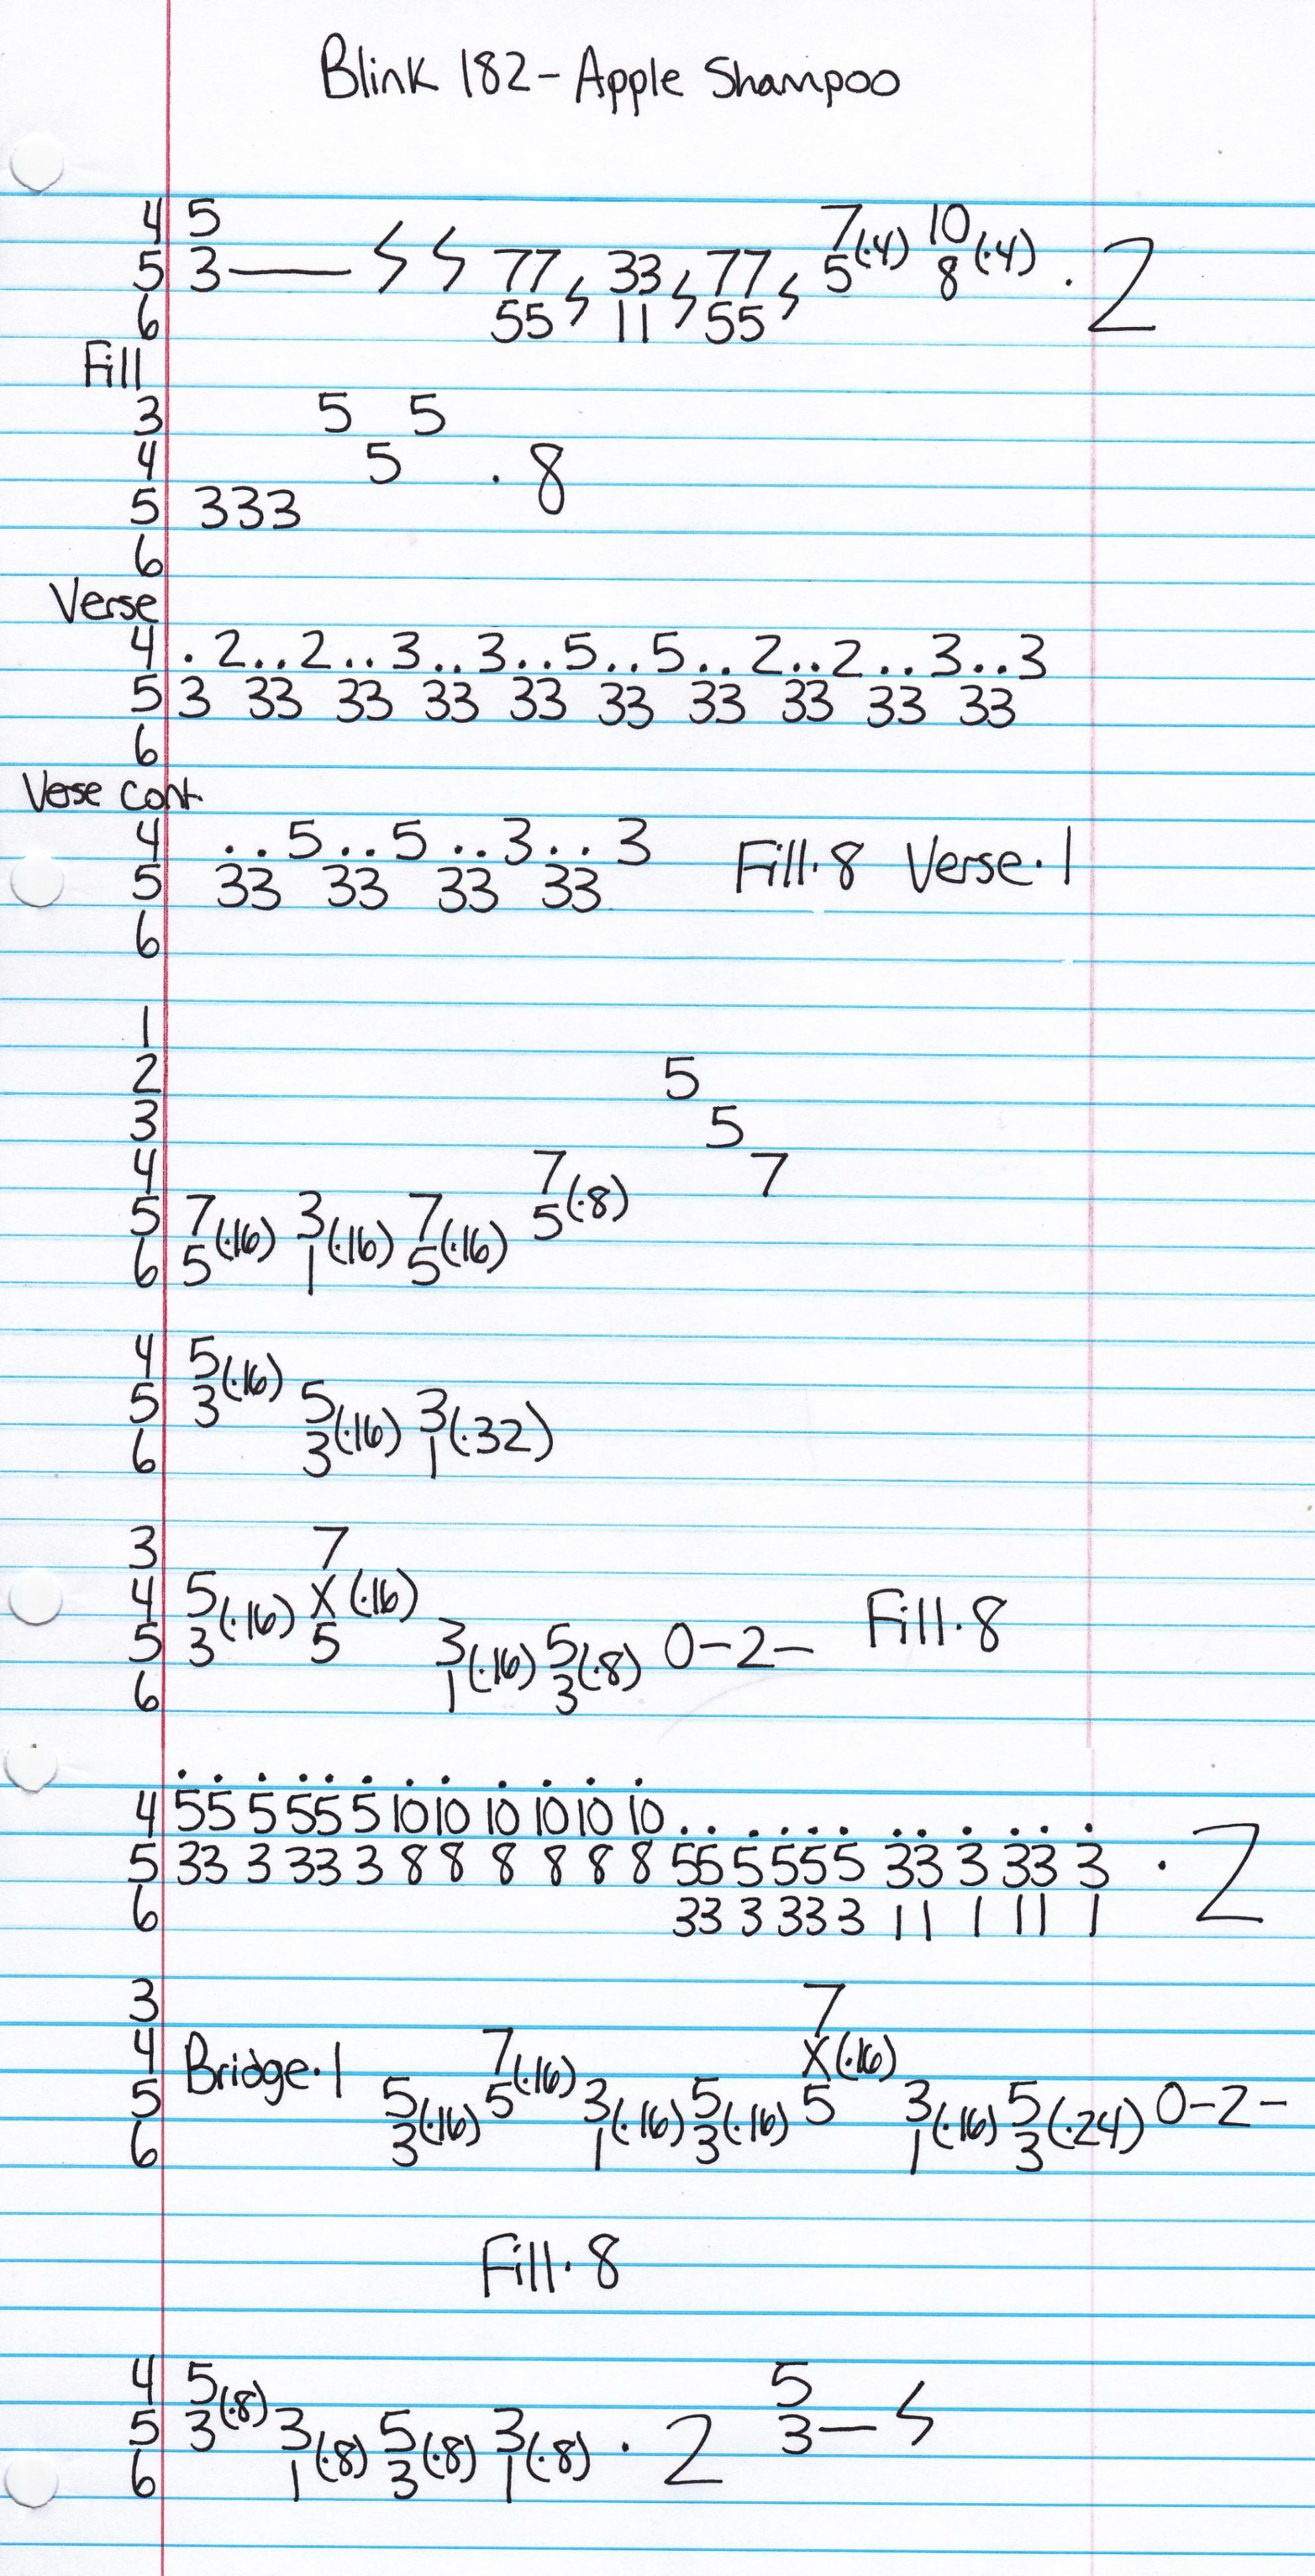 Blink 182 - Apple Shampoo
4 5 7 10
5 3— ϟ ϟ 77 ϟ 33 ϟ 77 ϟ 5(·4) 8(·4) · 2
6 55 11 55
Fill
3 5 5
4 5 · 8
5 333
6
Verse
4 . 2..2..3..3..5..5..2..2..3..3
5 3 33 33 33 33 33 33 33 33 33
6
Verse cont.
4 ..5..5..3..3 Fill·8 Verse·1
5 33 33 33 33
6
1
2 5
3 5
4 7(·8) 7
5 7(·16) 3(·16) 7(·16) 5
6 5 1 5
4 5(·16)
5 3 5(·16) 3(·32)
6 3 1
3 7
4 5(·16) X(·16) Fill·8
5 3 5 3(·16) 5(·8) 0-2-
6 1 3
. . . . . . . . . . . .
4 55 5 55 5 10 10 10 10 10 10 . . . . . . . . . . . .
5 33 3 33 3 8 8 8 8 8 8 55 5 55 5 33 3 33 3 · 2
6 33 3 33 3 11 1 11 1
3 7
4 Bridge·1 7(·16) X(·16)
5 5(·16) 5 3(·16) 5(·16) 5 3(·16) 5(·24) 0-2-
6 3 1 3 1 3
Fill·8
4 5(·8) 5
5 3 3(·8) 5(·8) 3(·8) · 2 3— ϟ
6 1 3 1